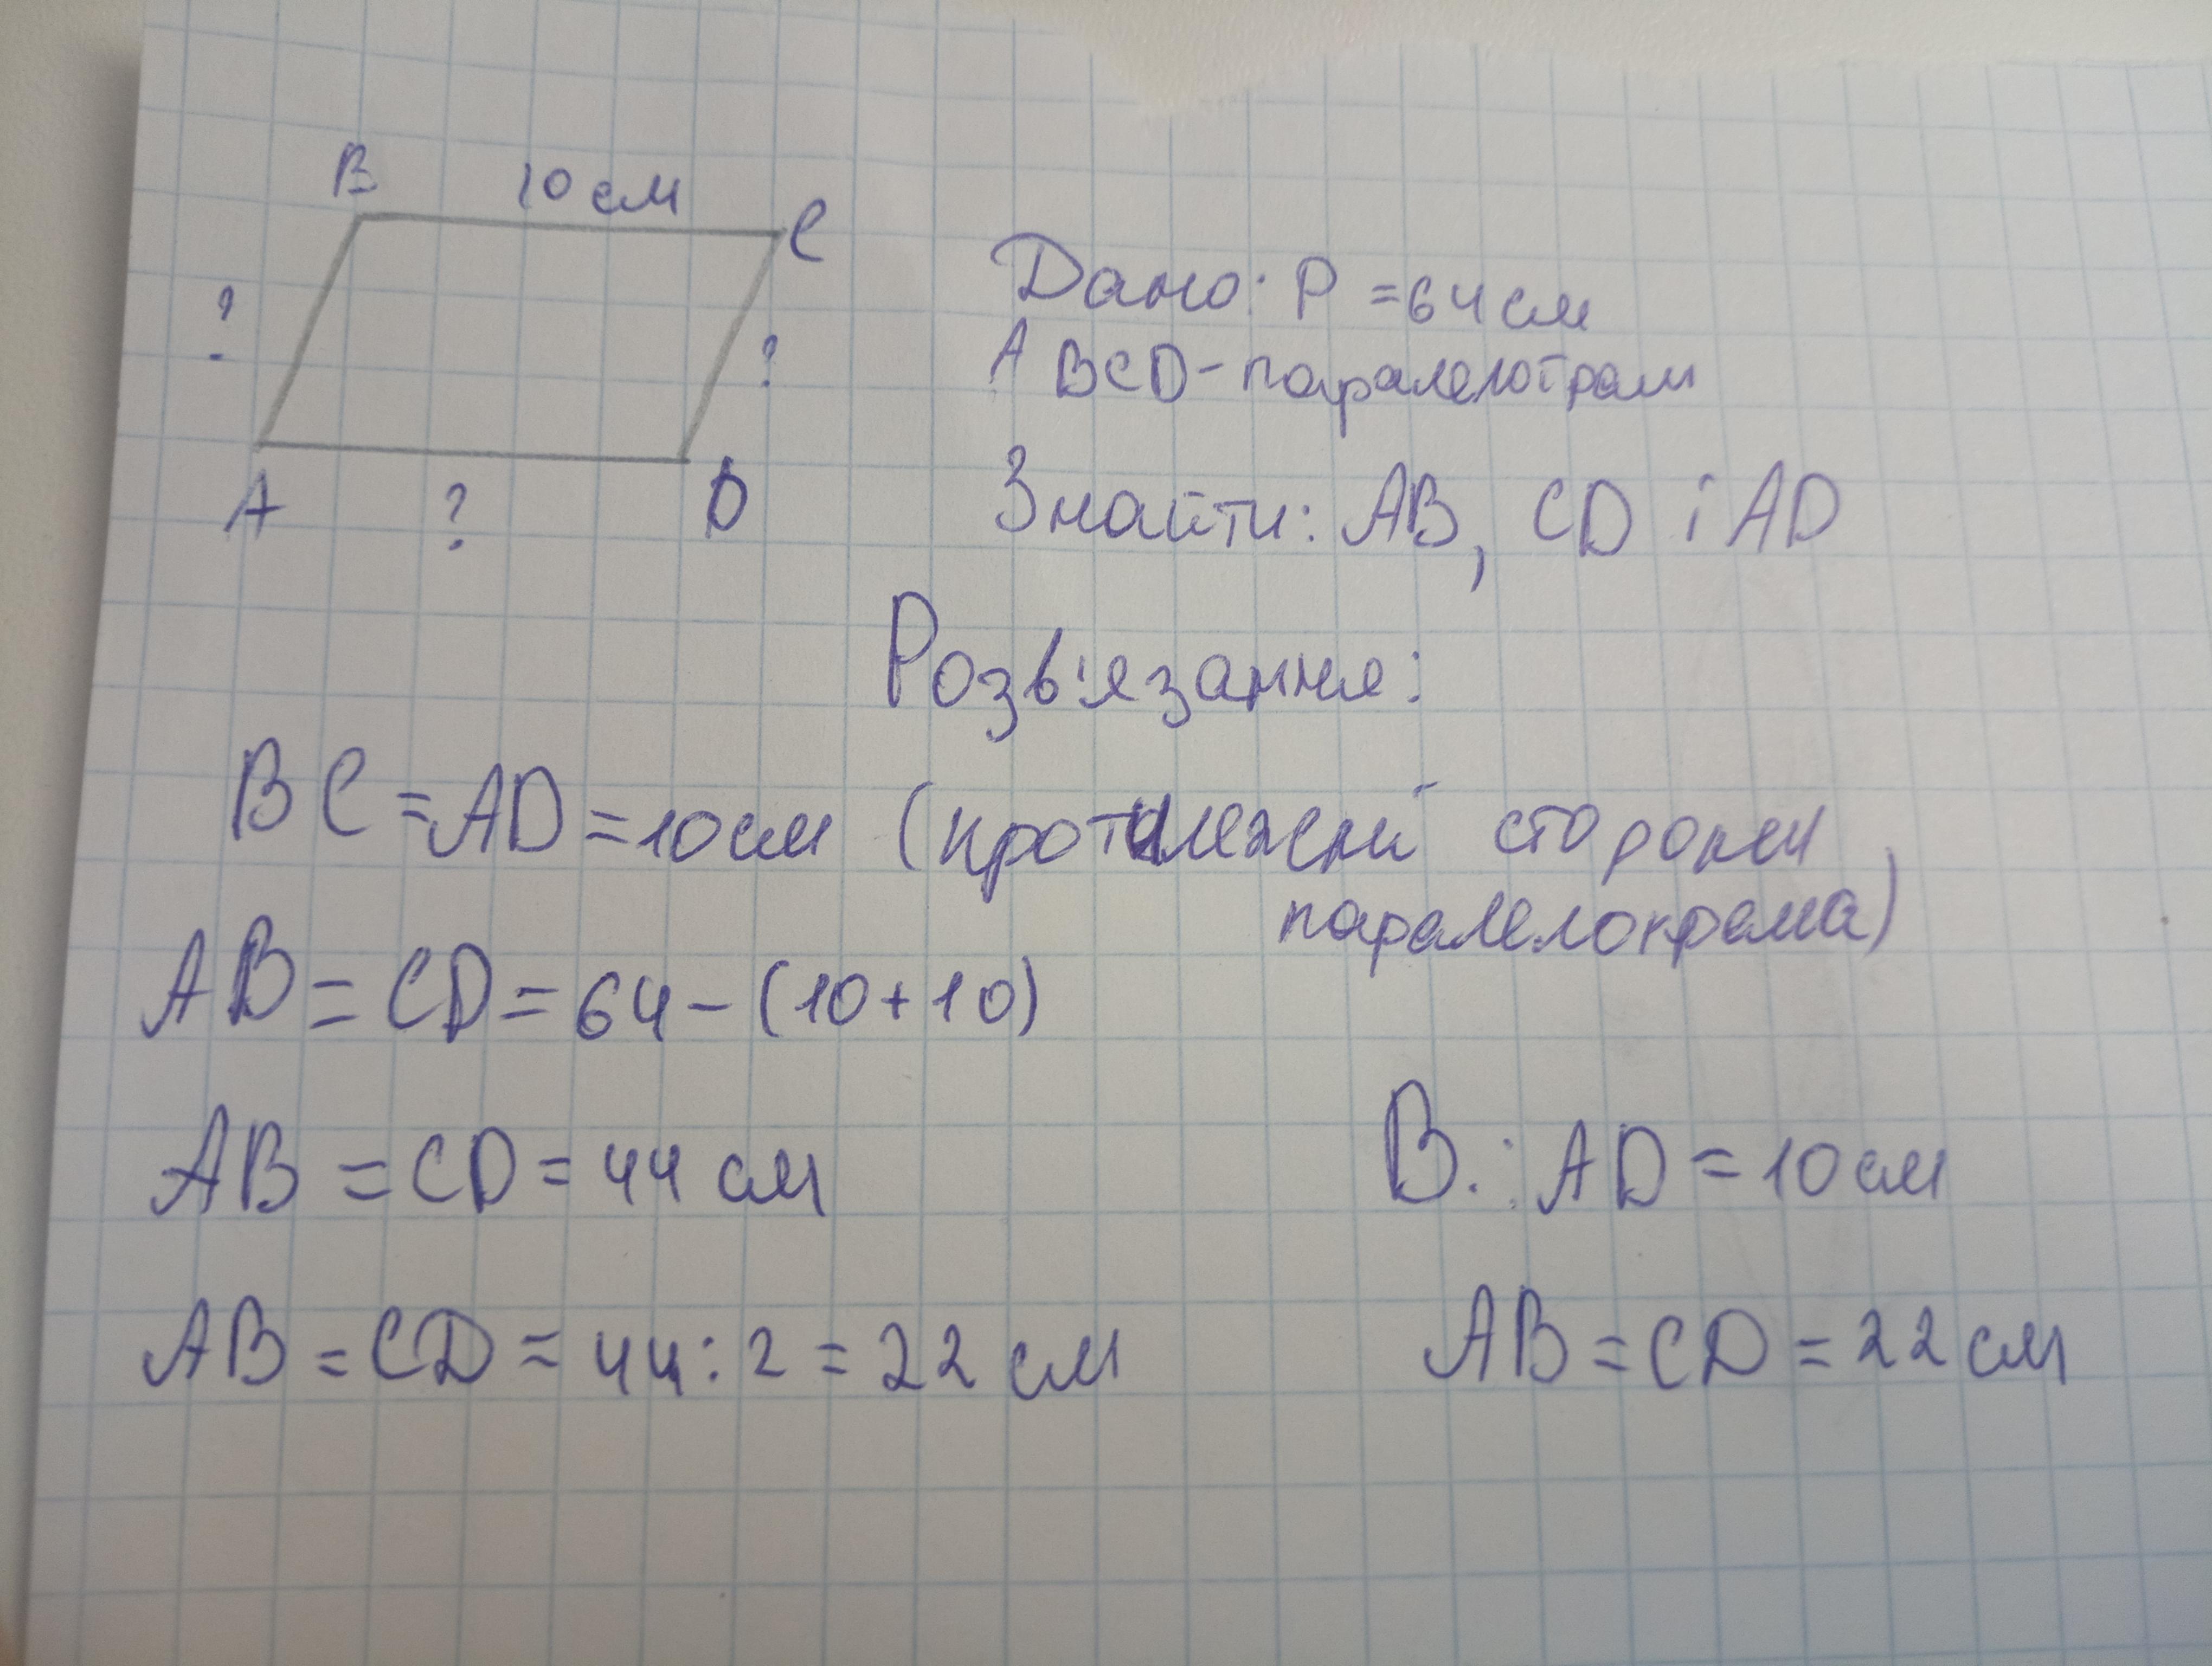 B 10 см C
? ?
A ? D
Дано: P = 64 см
ABCD - паралелограм
Знайти: AB, CD і AD
Розв'язання:
BC = AD = 10 см (протилежні сторони
паралелокрама)
AB = CD = 64 - (10 + 10)
AB = CD = 44 см
AB = CD = 44 : 2 = 22 см
В.: AD = 10 см
AB = CD = 22 см